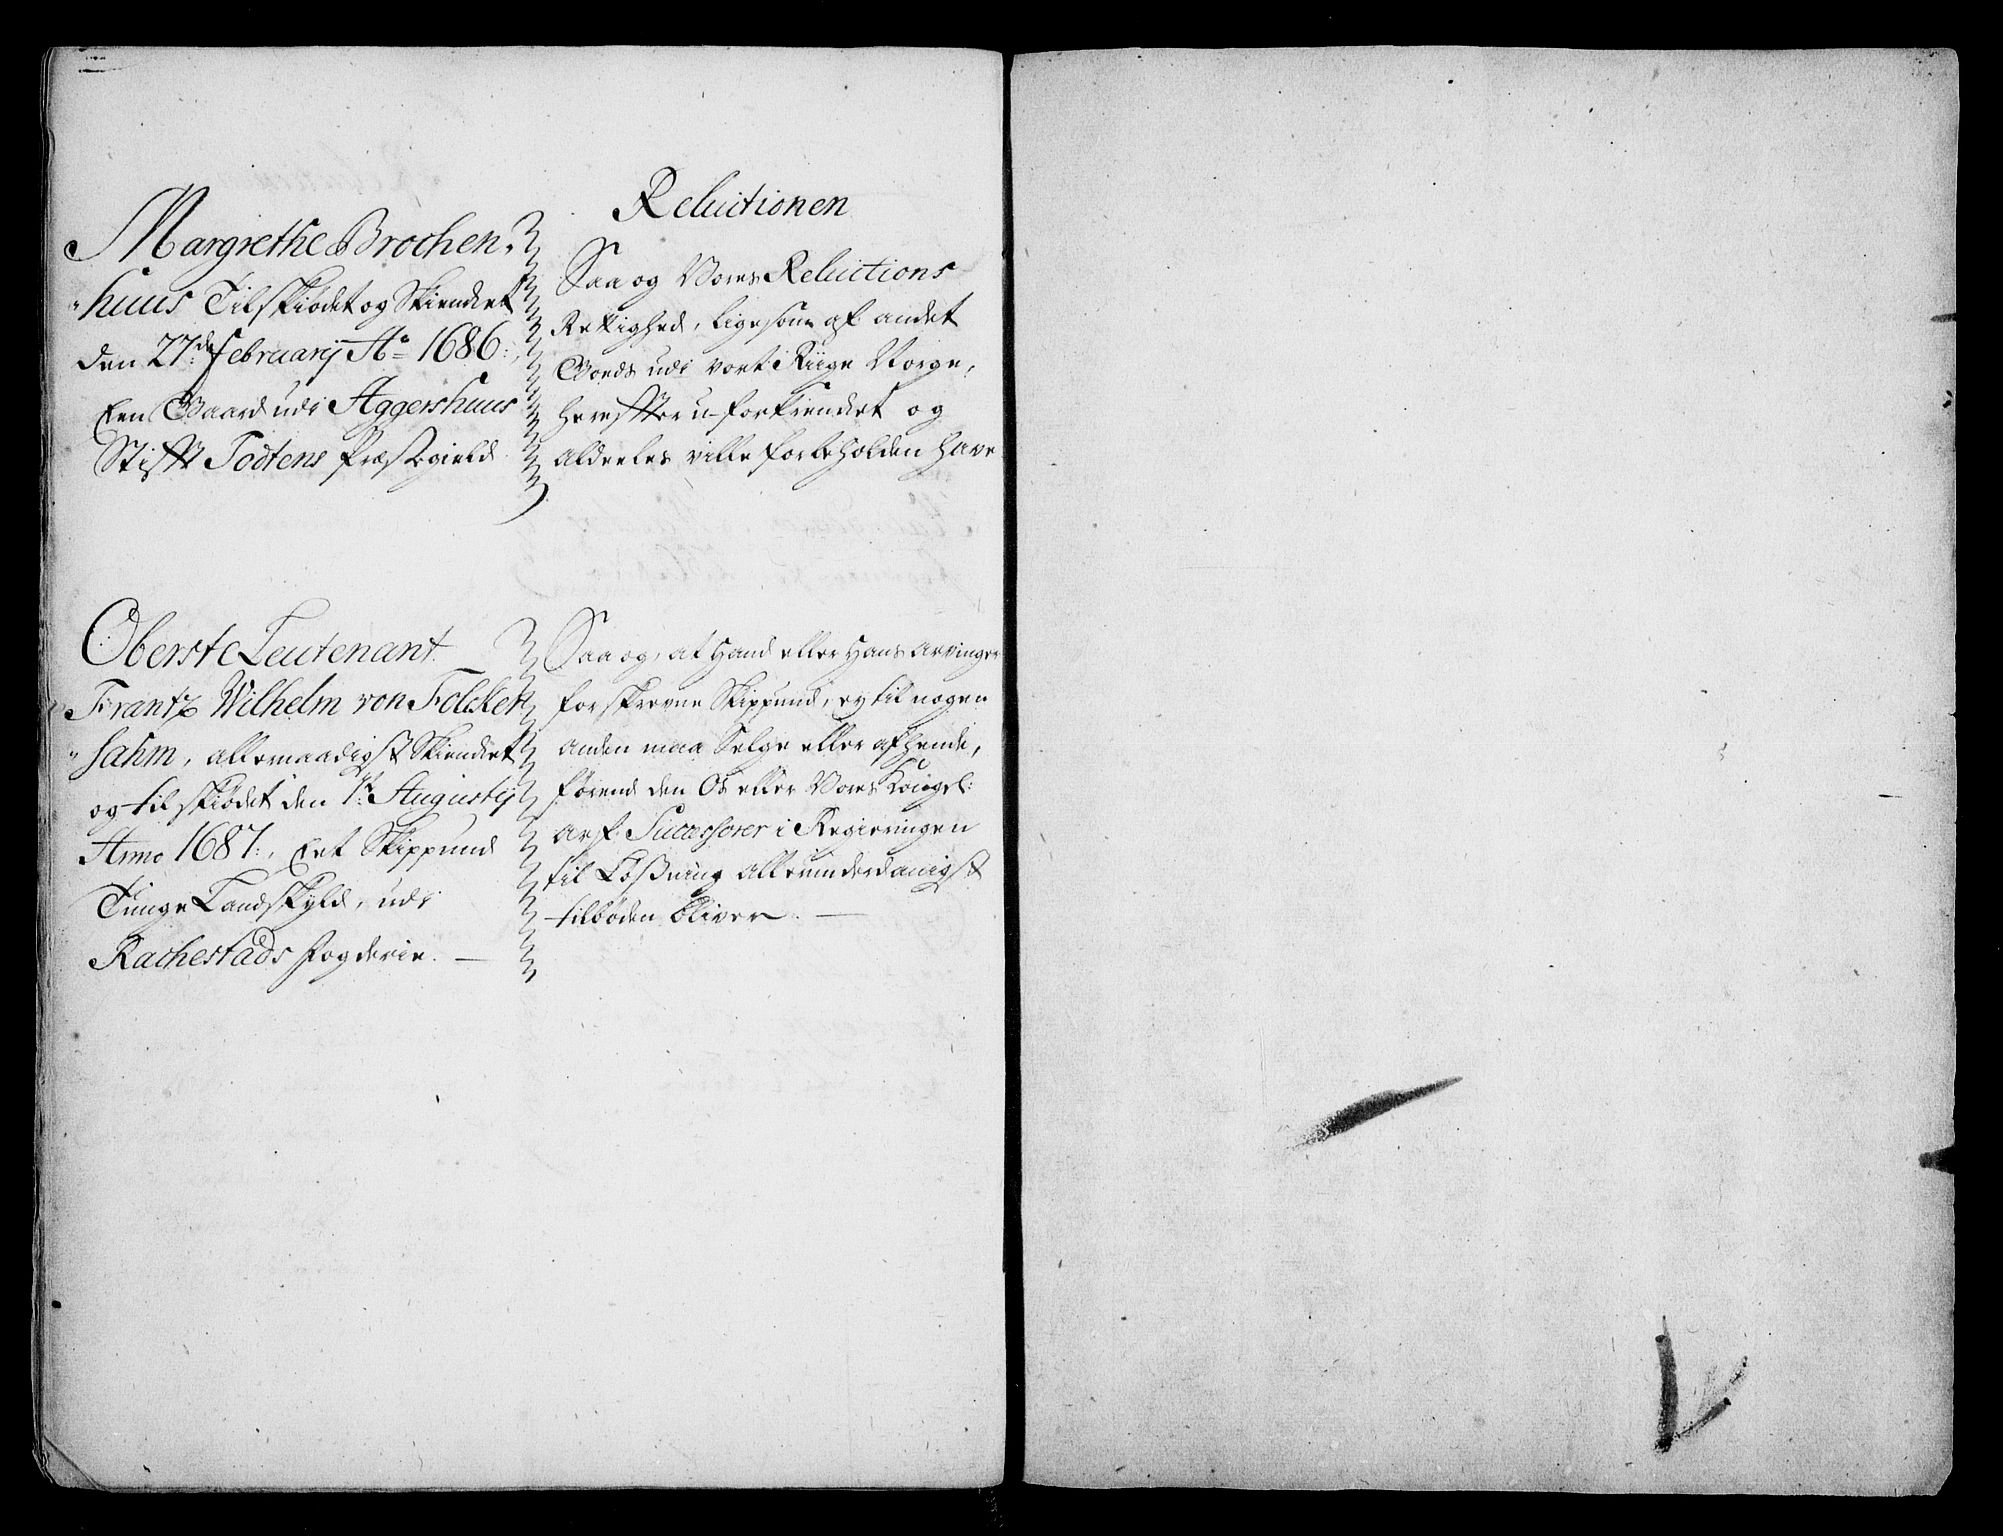 Reluitionen
Margrethe Brochen,,
"huus Tilskiödet og Skiendet
den 27de February Ao 1686:,
Een Gaard udi Aggershuus
Stifft Todtens Præstegield
Saa og Vores Reluitions
Rettighed, ligesom af andet
Goeds udi vort Riige Norge,
herefter u-forkrendket og
aldeeles ville forbeholden have
Oberste Leutenant
Frantz Wilhelm von Folcker
"sahm, allernaadigst Skiendet
og tilskiödet den 1ste Augusty
Anno 1687:, Eet Skippund
Tunge Landskyld, udi
Rachestads fogderie. —
Saa og, at Hand eller Hans Arvinger
forskrevne Skippund, ey til nogen
anden maa Selge eller afhende,
förend den Os eller Vores Kongel:
Arf Successorer i Regieringen
til Lößning allerunderdanigst
tilböden bliver. —